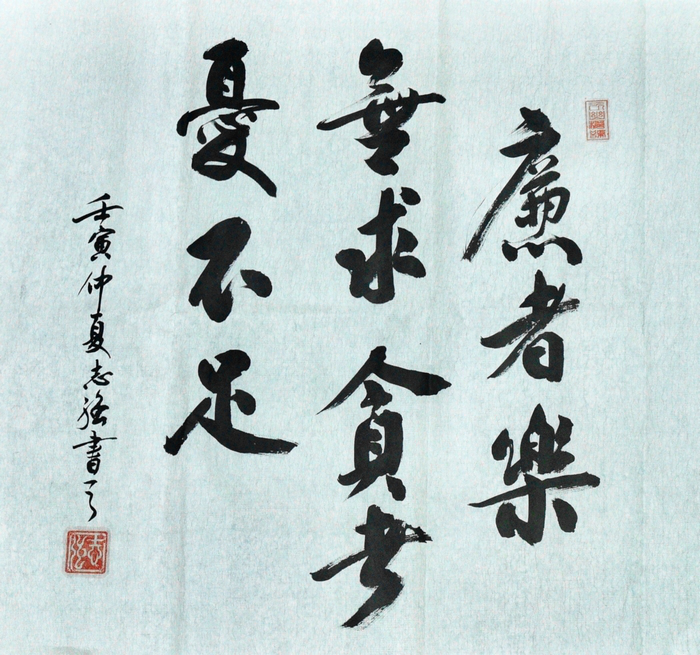 廉者樂
無求貪者
憂不足
壬寅仲夏志強書